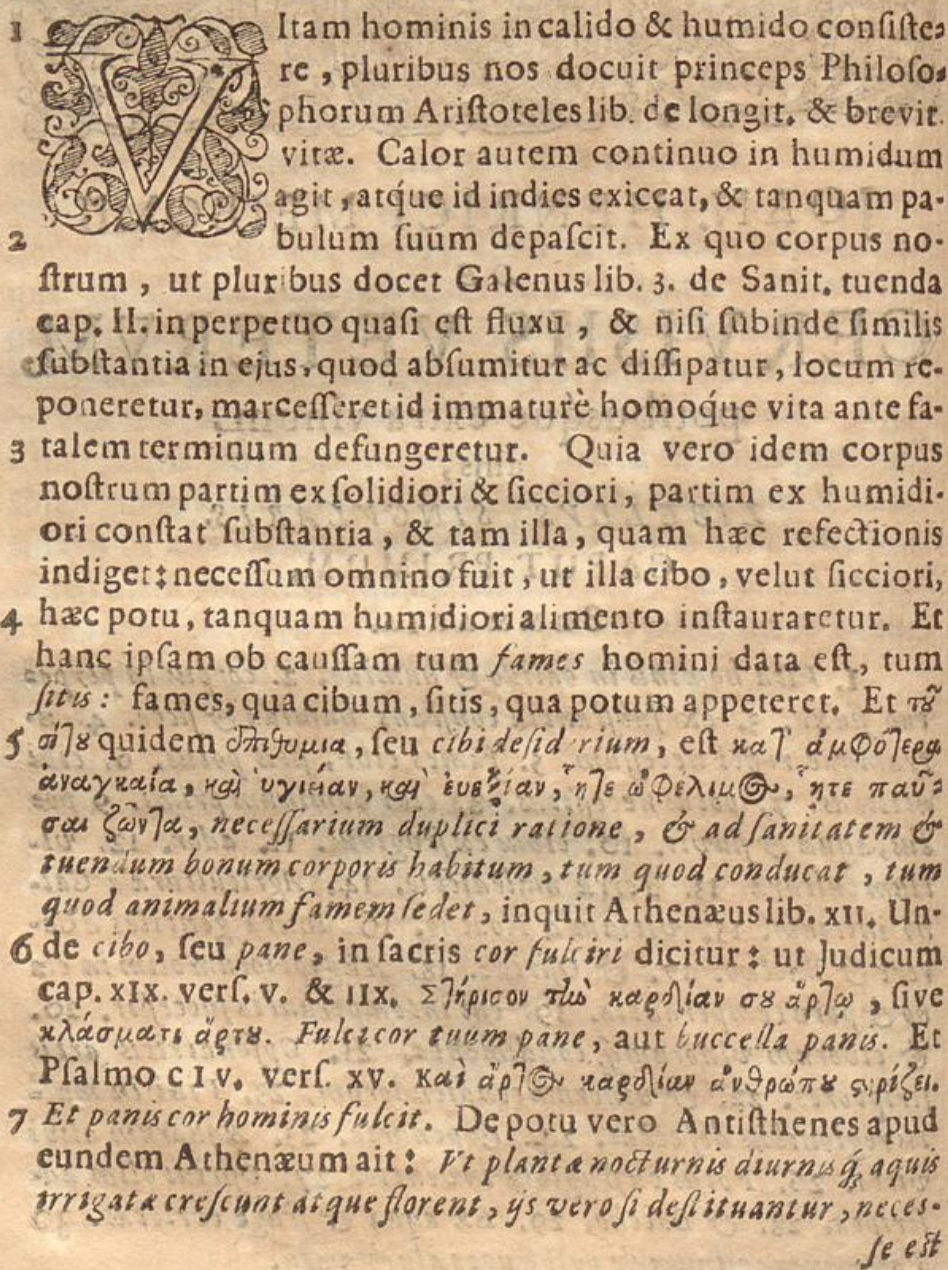 1 VItam hominis in calido & humido consiste-
re, pluribus nos docuit princeps Philoso-
phorum Aristoteles lib. de longit. & brevit.
vitæ. Calor autem continuo in humidum
agit, atq́ue id indies exiccat, & tanquam pa-
2 bulum suum depascit. Ex quo corpus no-
strum, ut pluribus docet Galenus lib. 3. de Sanit. tuenda
cap. II. in perpetuo quasi est fluxu, & nisi subinde similis
substantia in ejus, quod absumitur ac dissipatur, locum re-
poneretur, marcesseret id immaturè homoq́ue vita ante fa-
3 talem terminum defungeretur. Quia vero idem corpus
nostrum partim ex solidiori & sicciori, partim ex humidi-
ori constat substantia, & tam illa, quam hæc refectionis
indiget: necessum omnino fuit, ut illa cibo, velut sicciori,
4 hæc potu, tanquam humidiori alimento instauraretur. Et
hanc ipsam ob caussam tum fames homini data est, tum
sitis: fames, qua cibum, sitis, qua potum appeteret. Et τοῦ
5 σίτου quidem ἐπιθυμια, seu cibi desiderium, est κατ᾽ ἀμφότερα
ἀναγκαία, καὶ ὑγιείαν, καὶ ἐυεξίαν, ἥτε ὠφέλιμος, ἥτε παῦ-
σαι ζῶντα, necessarium duplici ratione, & ad sanitatem &
tuendum bonum corporis habitum, tum quod conducat, tum
quod animalium famem sedet, inquit Athenæus lib. XII. Un-
6 de cibo, seu pane, in sacris cor fulciri dicitur: ut Judicum
cap. XIX. vers. V. & IIX. Στήρισον τὴν καρδίαν σου ἄρτῳ, sive
κλάσματι ἄρτου. Fulci cor tuum pane, aut buccella panis. Et
Psalmo CIV. vers. XV. Καὶ ἄρτος καρδίαν ἀνθρώπου στηρίζει.
7 Et panis cor hominis fulcit. De potu vero Antisthenes apud
eundem Athenæum ait: Vt plantæ nocturnis diurnisq́; aquis
irrigatæ crescunt atque florent, ijs vero si destituantur, neces-
se est